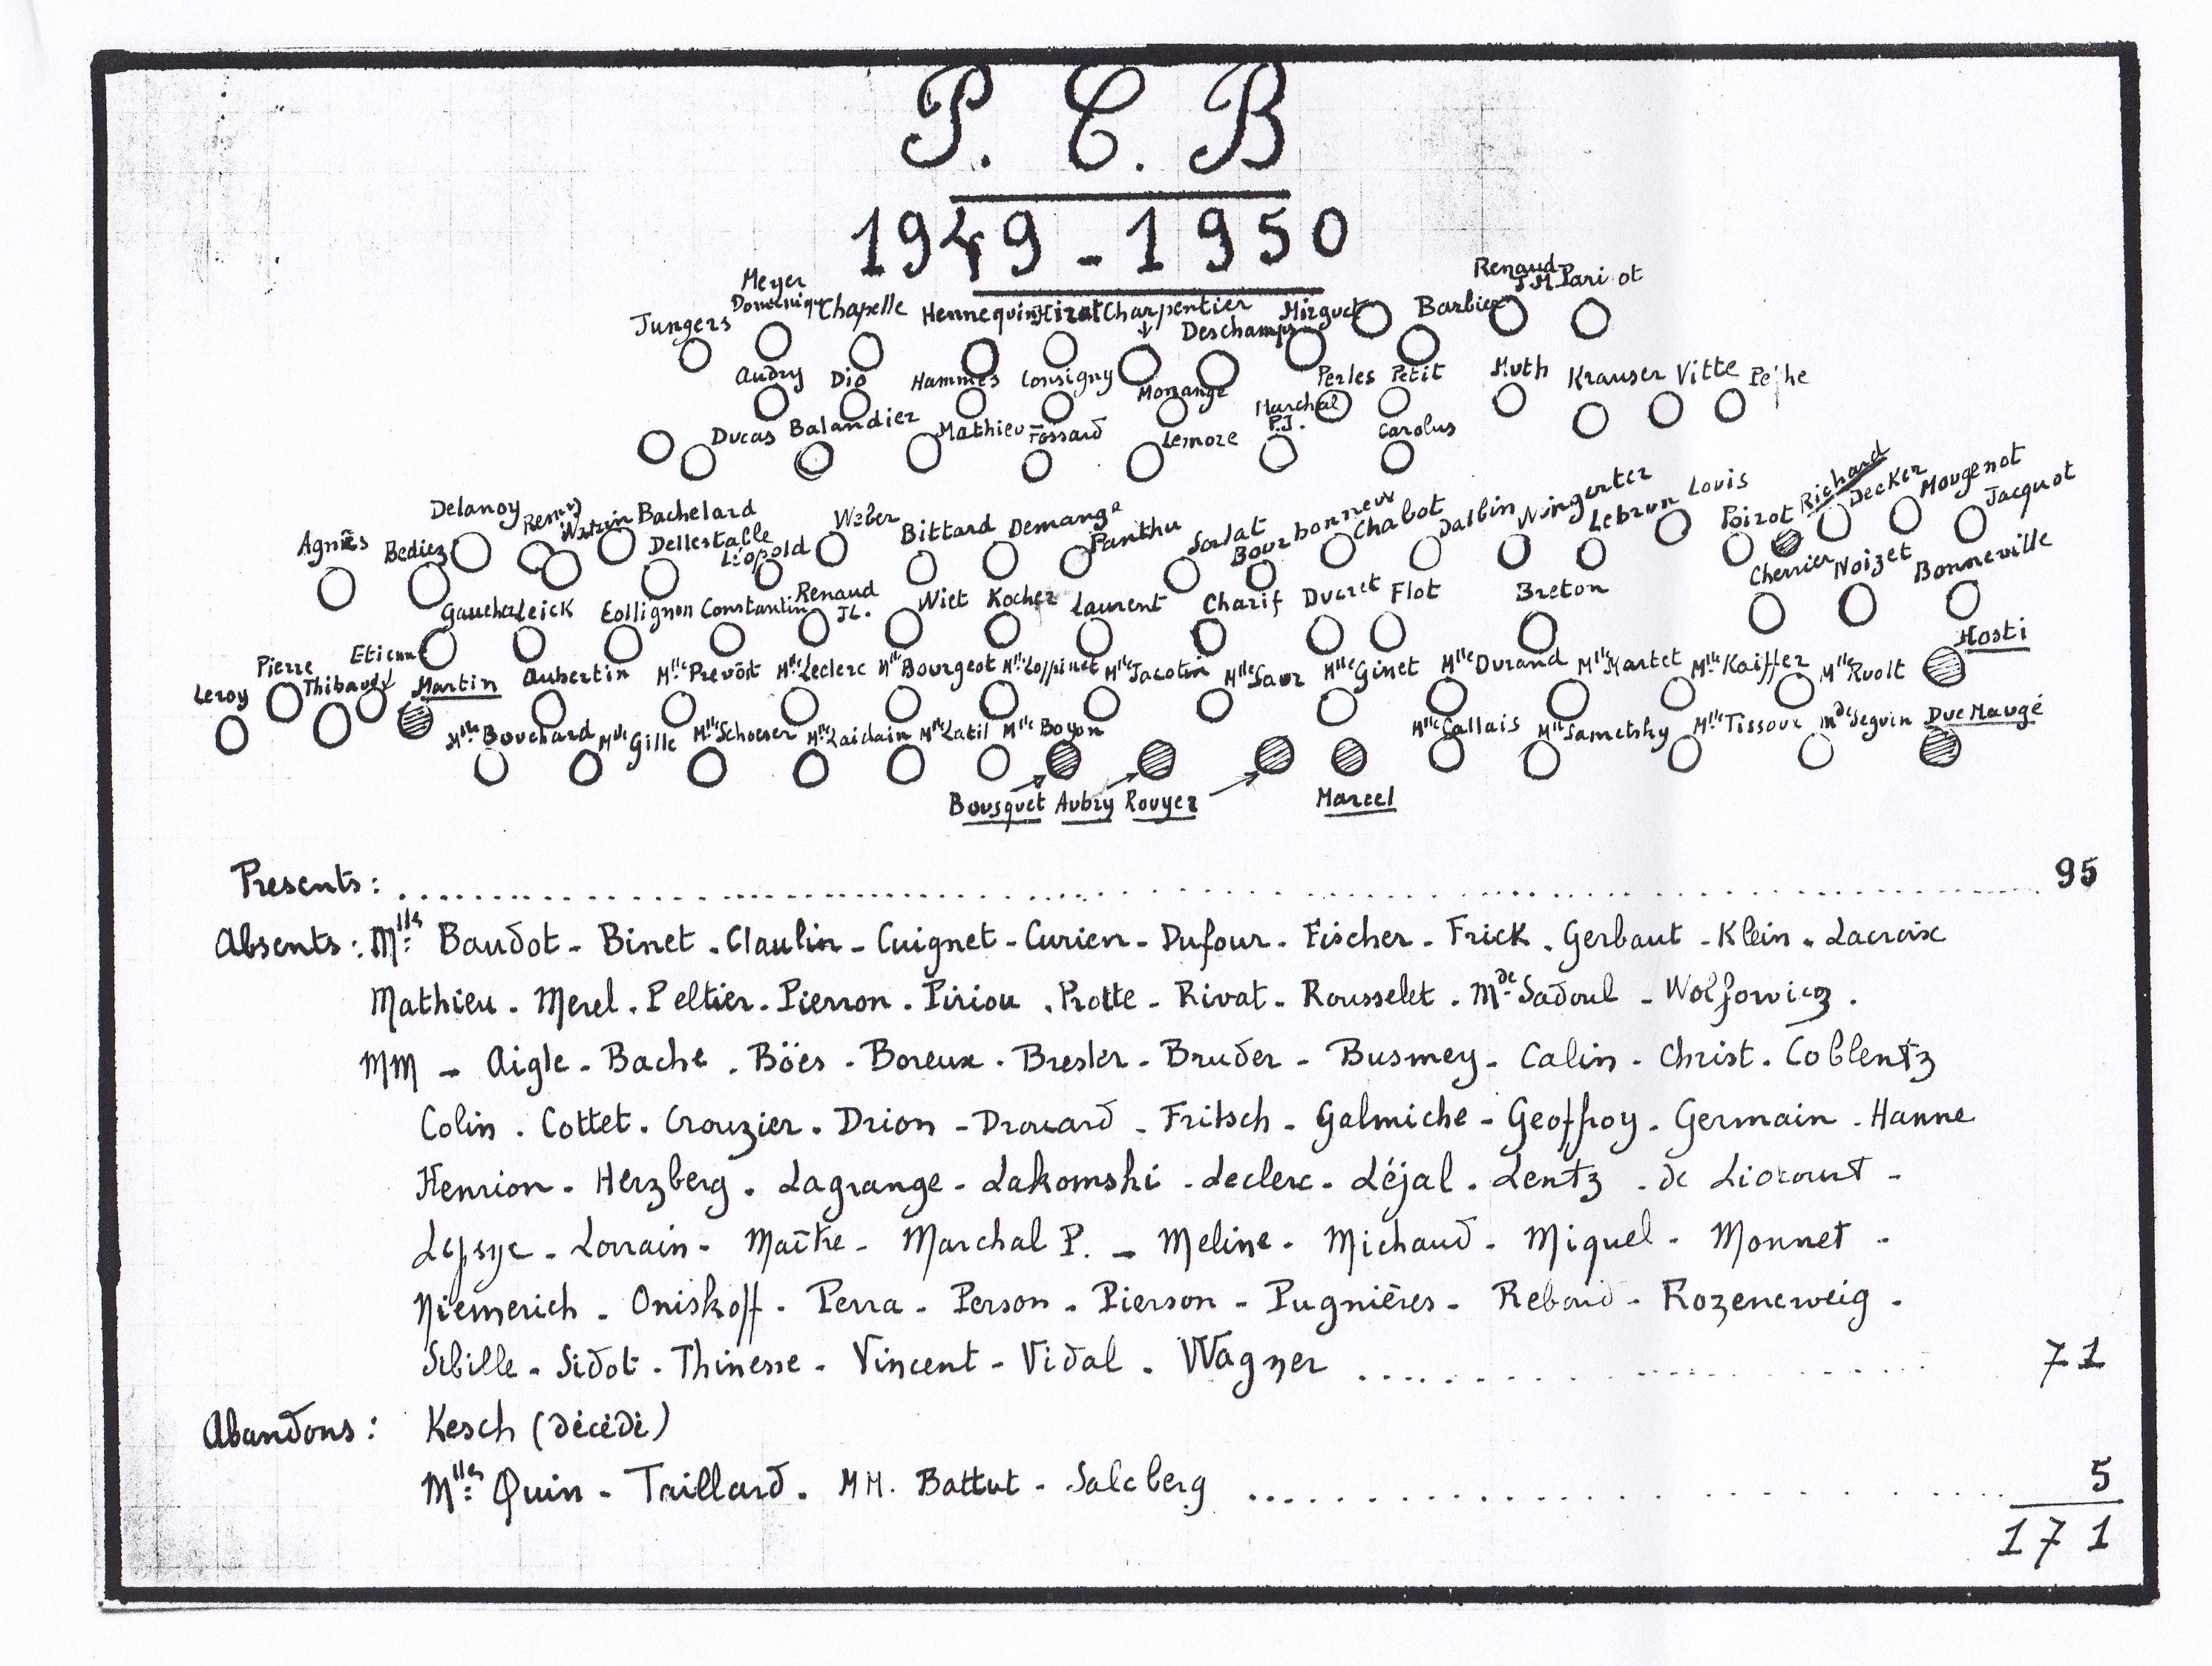 P. C. B
1949 - 1950
Renaud J.M. Pari ot
Meyer Dominique Chapelle Hennequin Hizat Charpentier Mirguet Barbier
Jungers Deschamps
Audry Dio Hammes Consigny Morange Perles Petit Muth Krauser Vitte Pe he
Ducas Balandier Mathieu Fossard Lemoze Marchal P.J. Carolus
Delanoy Remy Watrin Bachelard Weber Bittard Demange Panthu Sarlat Bourbonneux Chabot Dalbin Wingerter Lebrun Louis Poirot Richard Decker Mougenot Jacquot
Agnès Bediez Dellestable Léopold
Cherrier Noizet Bonneville
Gaucher Leick Collignon Constantin Renaud JL. Wiet Kocher Laurent Charif Ducret Flot Breton
Hosti
Leroy Pierre Thibaud Etienne Martin Aubertin Mlle Prevôt Mlle Leclerc Mlle Bourgeot Mlle Loppinet Mlle Jacotin Mlle Saur Mlle Ginet Mlle Durand Mlle Martet Mlle Kaiffer Mlle Ruolt
Mlle Bouchard Mlle Gille Mlle Schoeser Mlle Laidain Mlle Latil Mlle Boyon Mlle Callais Mlle Sametshy Mlle Tissoux Mde Seguin Duc Maugé
Bousquet Aubry Rouyer Marcel
Presents : 95
Absents : Mlles Baudot - Binet - Claulin - Cuignet - Curien - Dufour - Fischer - Frick - Gerbaut - Klein - Lacroix
Mathieu - Merel - Peltier - Pierron - Piriou - Protte - Rivat - Rousselet - Mde Sadoul - Wolfowicz .
MM - Aigle - Bache - Böes - Boreux - Bresler - Bruder - Busmey - Calin - Christ - Coblentz
Colin - Cottet - Crouzier - Drion - Drouard - Fritsch - Galmiche - Geoffroy - Germain - Hanne
Henrion - Herzberg - Lagrange - Lakomski - Leclerc - Léjal - Lentz - de Liocourt -
Lepsye - Lorrain - Maître - Marchal P. - Meline - Michaud - Miquel - Monnet -
Niemerich - Oniskoff - Perra - Person - Pierson - Pugnières - Rebaud - Rozencweig -
Sibille - Sidot - Thinesse - Vincent - Vidal - Wagner 71
Abandons : Kesch (décédé)
Mlles Quin - Taillard - MM. Battut - Salcberg 5
171